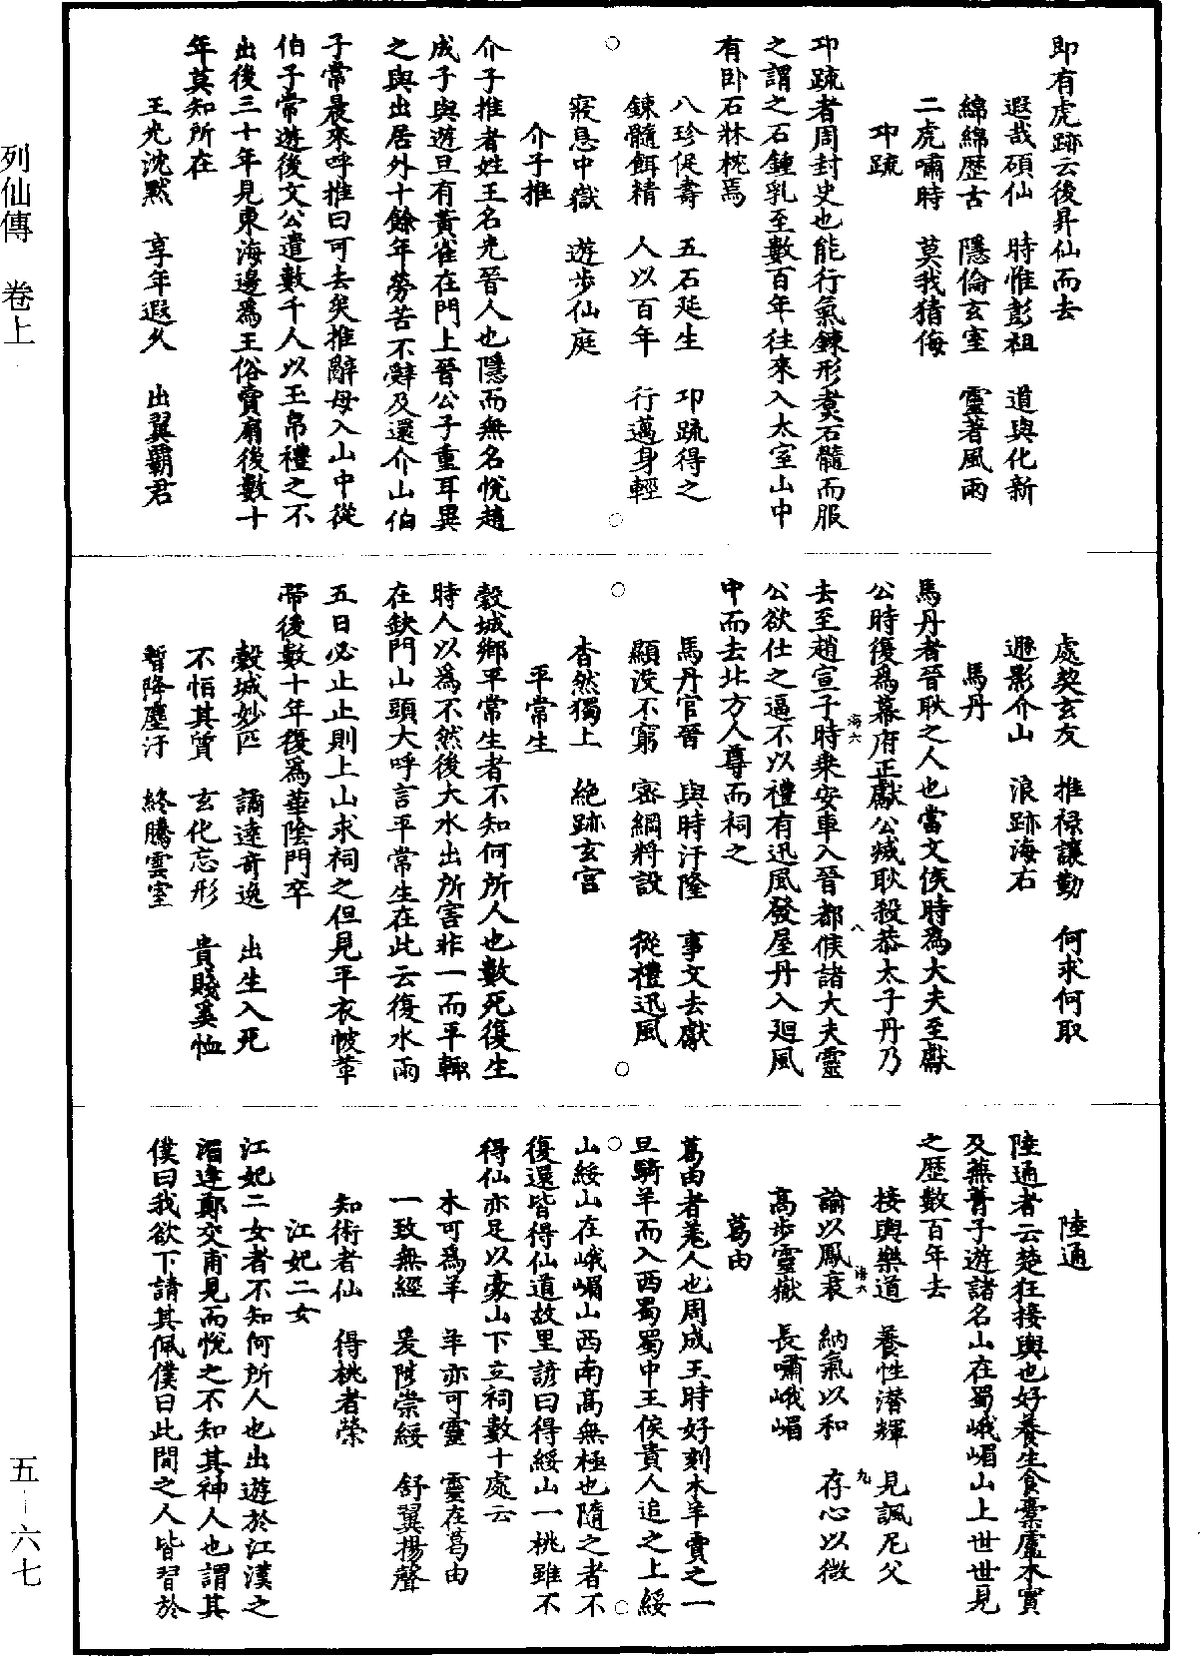 即有虎跡云後昇仙而去
遐哉碩仙　時惟彭祖　道與化新
綿綿歷古　隱倫玄室　靈著風雨
二虎嘯時　莫我猜侮
邛疏
邛疏者周封史也能行氣鍊形煑石髓而服
之謂之石鍾乳至數百年往來入太室山中
有卧石牀枕焉
八珍促壽　五石延生　邛疏得之
鍊髓餌精　人以百年　行邁身輕
寢息中嶽　遊步仙庭
介子推
介子推者姓王名光晉人也隱而無名悅趙
成子與遊旦有黃雀在門上晉公子重耳異
之與出居外十餘年勞苦不辭及還介山伯
子常晨來呼推曰可去矣推辭母入山中從
伯子常遊後文公遣數千人以玉帛禮之不
出後三十年見東海邊為王俗賣扇後數十
年莫知所在
王光沈默　享年遐久　出翼霸君
處契玄友　推祿讓勤　何求何取
遯影介山　浪跡海右
馬丹
馬丹者晉耿之人也當文侯時為大夫至獻
公時復為幕府正獻公滅耿殺恭太子丹乃
去至趙宣子時乗安車入晉都候諸大夫靈
公欲仕之逼不以禮有迅風發屋丹入廻風
中而去北方人尊而祠之
馬丹官晉　與時汙隆　事文去獻
顯没不窮　密綱將設　從禮迅風
杳然獨上　絶跡玄宮
平常生
穀城鄉平常生者不知何所人也數死復生
時人以為不然後大水出所害非一而平輙
在缺門山頭大呼言平常生在此云復水雨
五日必止止則上山求祠之但見平衣帔革
帶後數十年復為華陰門卒
穀城妙匹　譎達奇逸　出生入死
不怕其質　玄化忘形　貴賤奚恤
暫降塵汙　終騰雲室
陸通
陸通者云楚狂接輿也好養生食橐盧木實
及蕪菁子遊諸名山在蜀峨嵋山上世世見
之歷數百年去
接輿樂道　養性潛輝　見諷尼父
諭以鳳衰　納氣以和　存心以微
高步靈嶽　長嘯峨嵋
葛由
葛由者羌人也周成王時好刻木羊賣之一
旦騎羊而入西蜀蜀中王侯貴人追之上綏
山綏山在峨嵋山西南高無極也隨之者不
復還皆得仙道故里諺曰得綏山一桃雖不
得仙亦足以豪山下立祠數十處云
木可為羊　羊亦可靈　靈在葛由
一致無經　爰陟崇綏　舒翼揚聲
知術者仙　得桃者榮
江妃二女
江妃二女者不知何所人也出遊於江漢之
湄逢鄭交甫見而悅之不知其神人也謂其
僕曰我欲下請其佩僕曰此間之人皆習於
海六
八
海六
九
列仙傳　卷上
五－六七